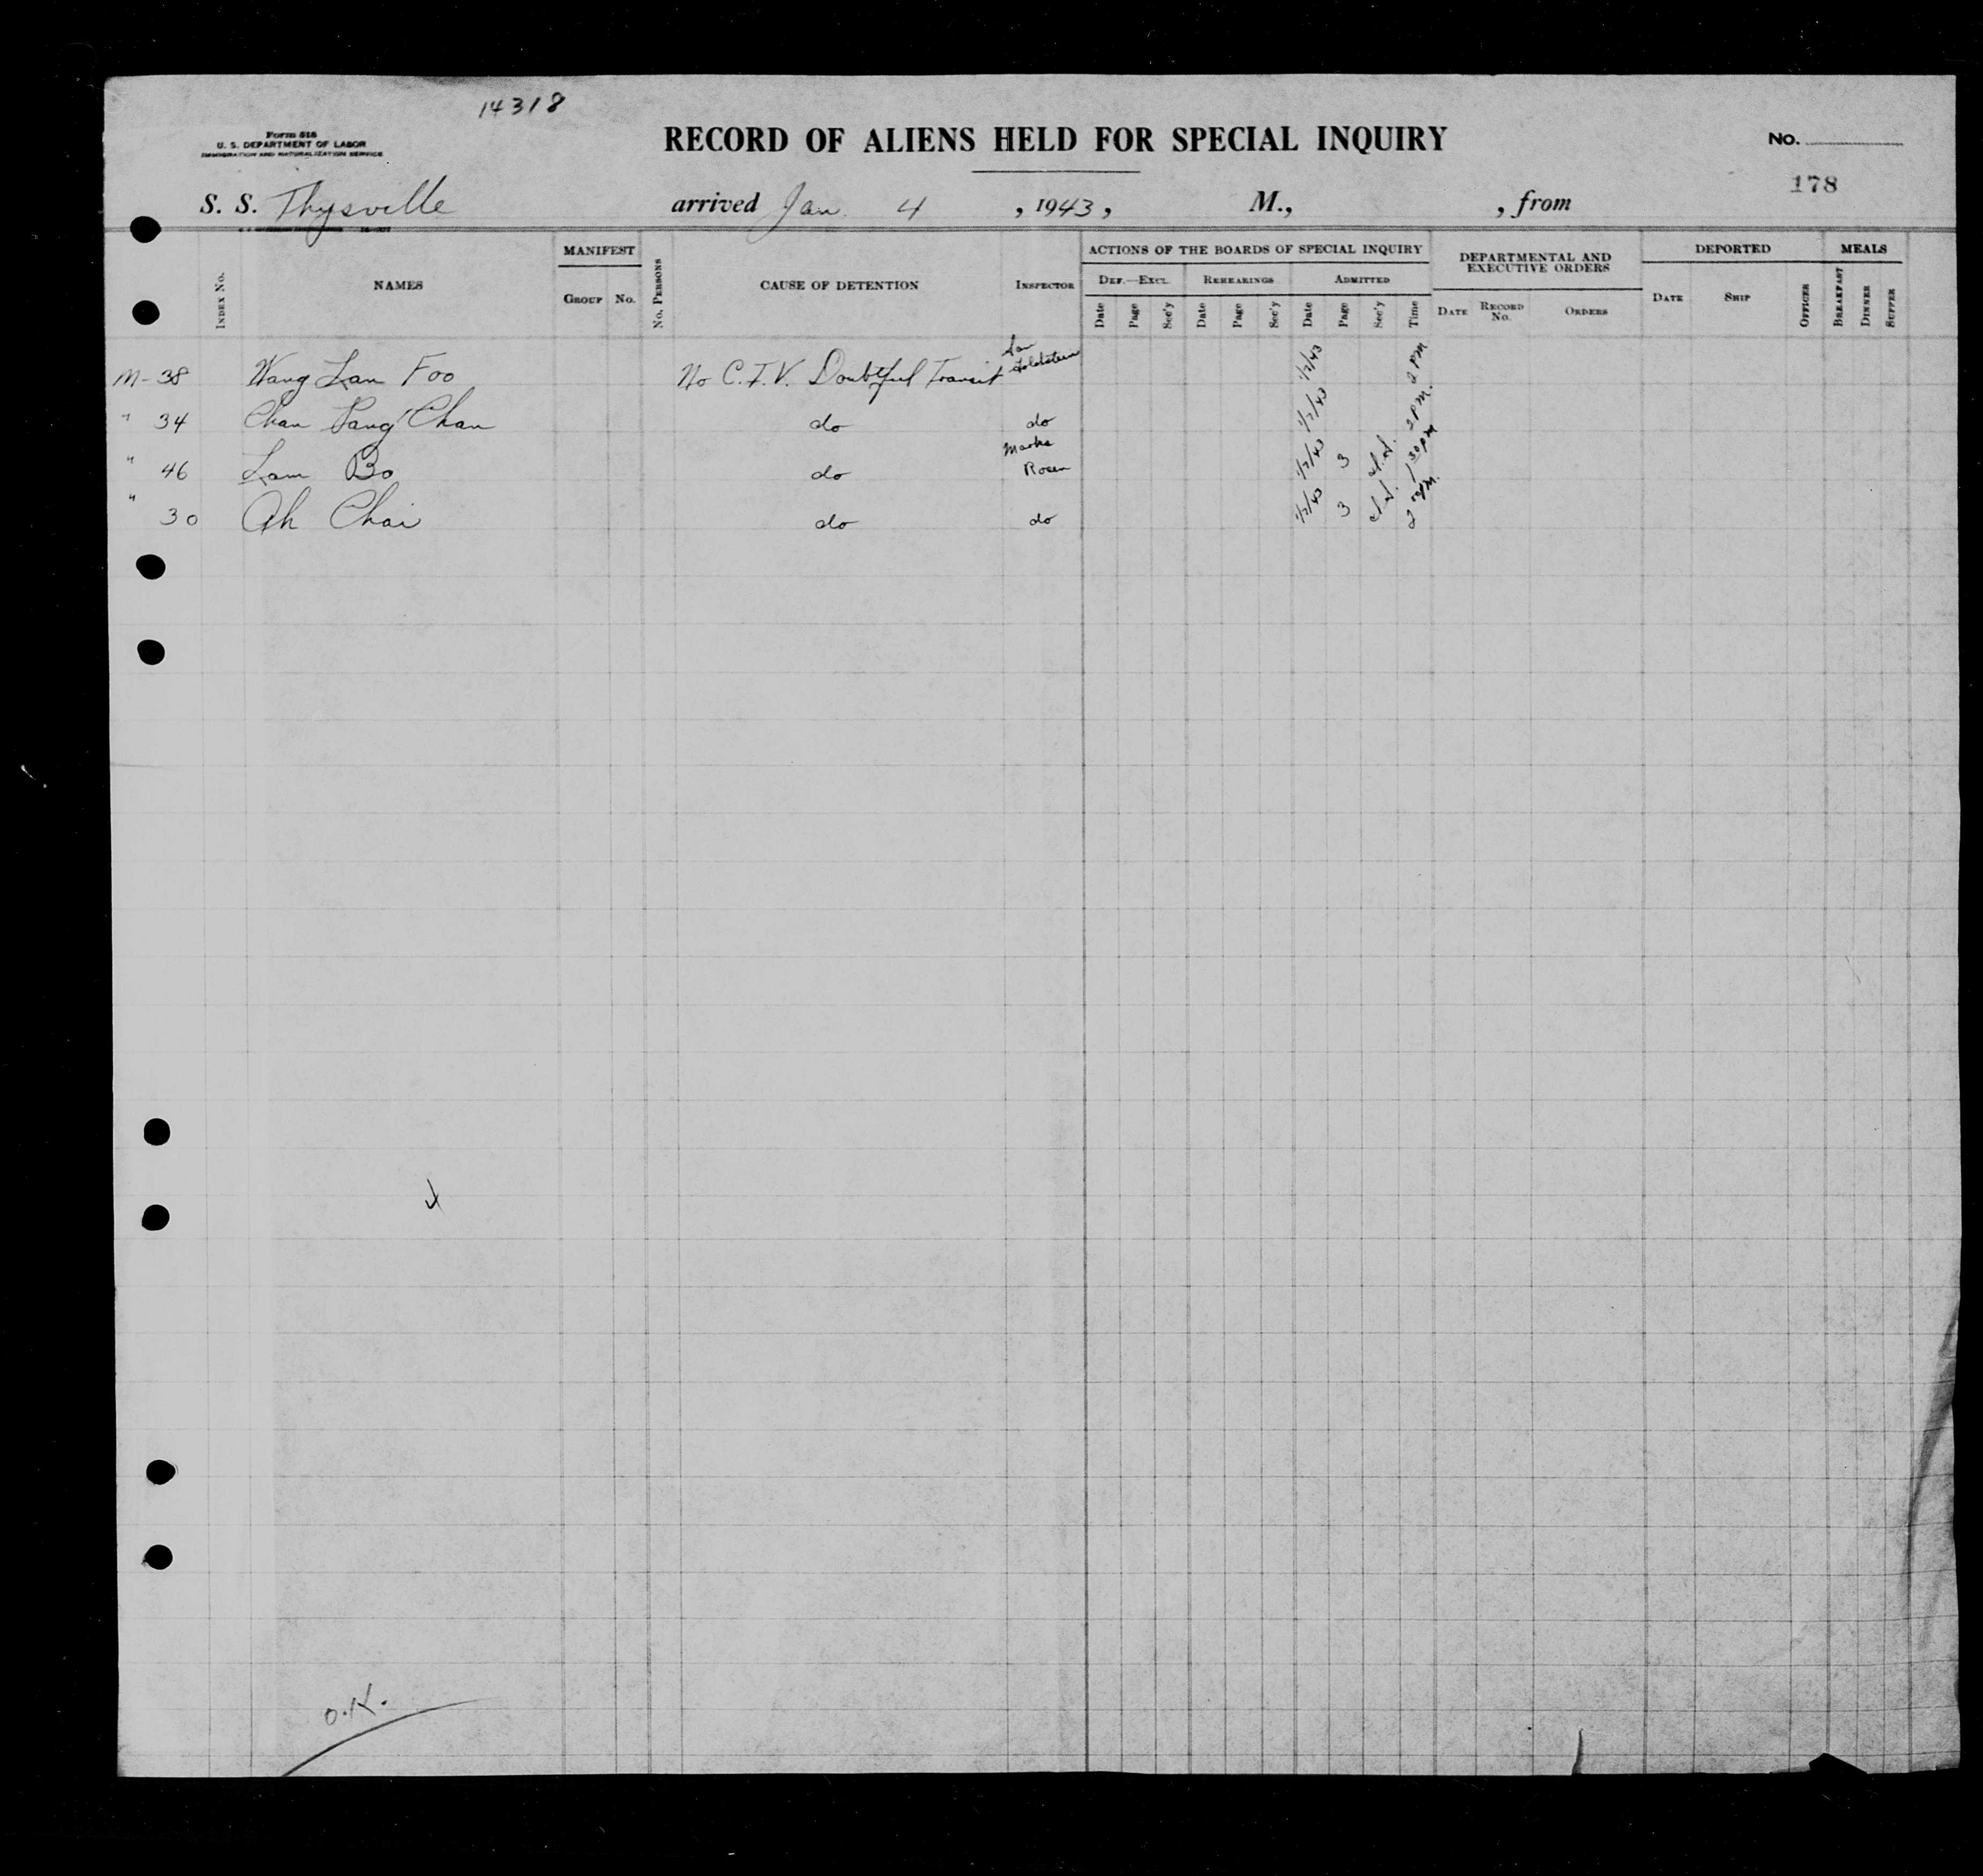 14318
Form 518
U. S. DEPARTMENT OF LABOR
IMMIGRATION AND NATURALIZATION SERVICE
RECORD OF ALIENS HELD FOR SPECIAL INQUIRY
No.
178
S. S. Thysville arrived Jan. 4, 1943, M., , from
INDEX No. NAMES MANIFEST GROUP No. No. PERSONS CAUSE OF DETENTION INSPECTOR ACTIONS OF THE BOARDS OF SPECIAL INQUIRY DEF.—EXCL. Date Page Sec'y REHEARINGS Date Page Sec'y ADMITTED Date Page Sec'y Time DEPARTMENTAL AND EXECUTIVE ORDERS DATE RECORD No. ORDERS DEPORTED DATE SHIP OFFICER MEALS BREAKFAST DINNER SUPPER
M-38 Wang Lan Foo No C.I.V. Doubtful Transit Goldstein 1/7/43 2 PM
" 34 Chan Chan do do 1/7/43 2 PM.
" 46 Lam Bo do Marks Rosen 1/7/43 3 1 30 PM
" 30 Ah Chai do do 1/7/43 3 2 00 PM.
4
O.K.